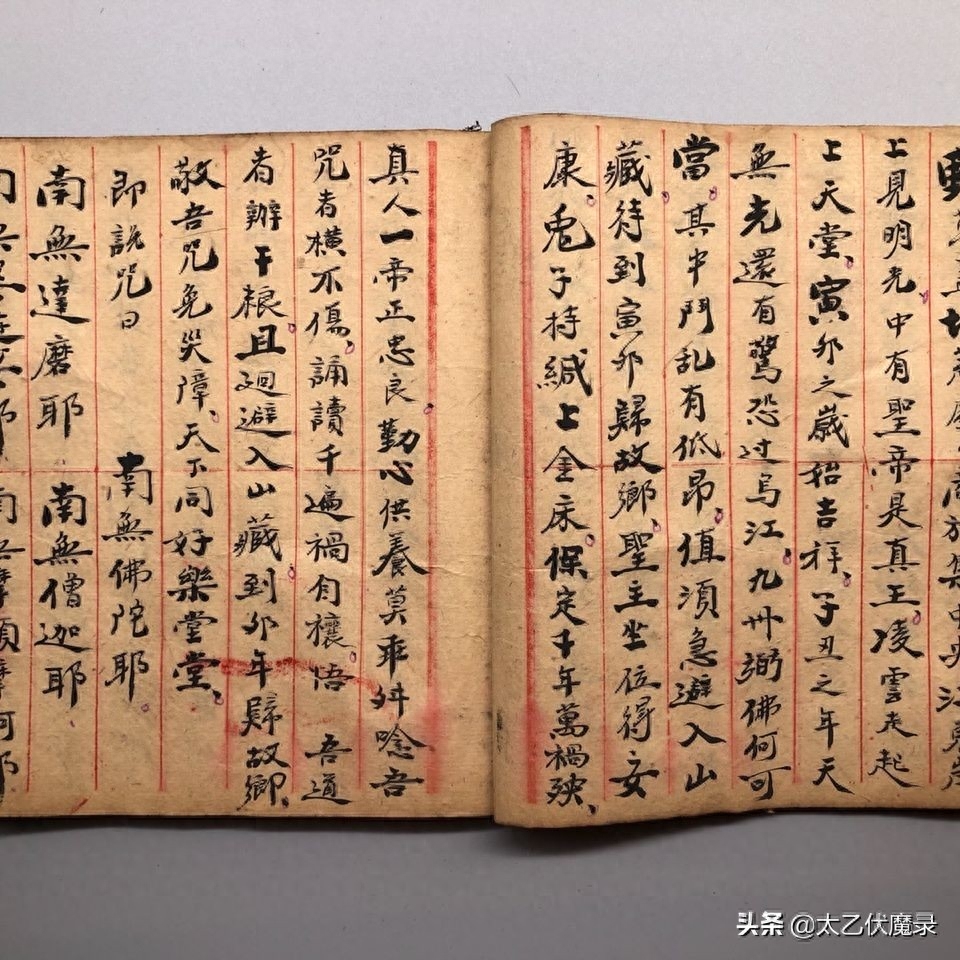 上見明光中有聖帝是真王凌雲走起
上天堂寅夘之歲始吉祥子丑之年天
無光還有驚恐过烏江九州弥佛何可
當其中鬥乱有低昂值須急避入山
藏待到寅夘歸故鄉聖主坐位得安
康兎子持緘上金床保定千年萬禍殃
真人一帝正忠良勤心供養莫乖舛唸吾
咒者橫不傷誦讀千遍禍自禳悟吾道
者辦干粮且廻避入山藏到夘年歸故鄉
敬吾咒免災障天下同好樂堂堂
即説咒曰
南無佛陀耶
南無達磨耶 南無僧迦耶
头条 @太乙伏魔录